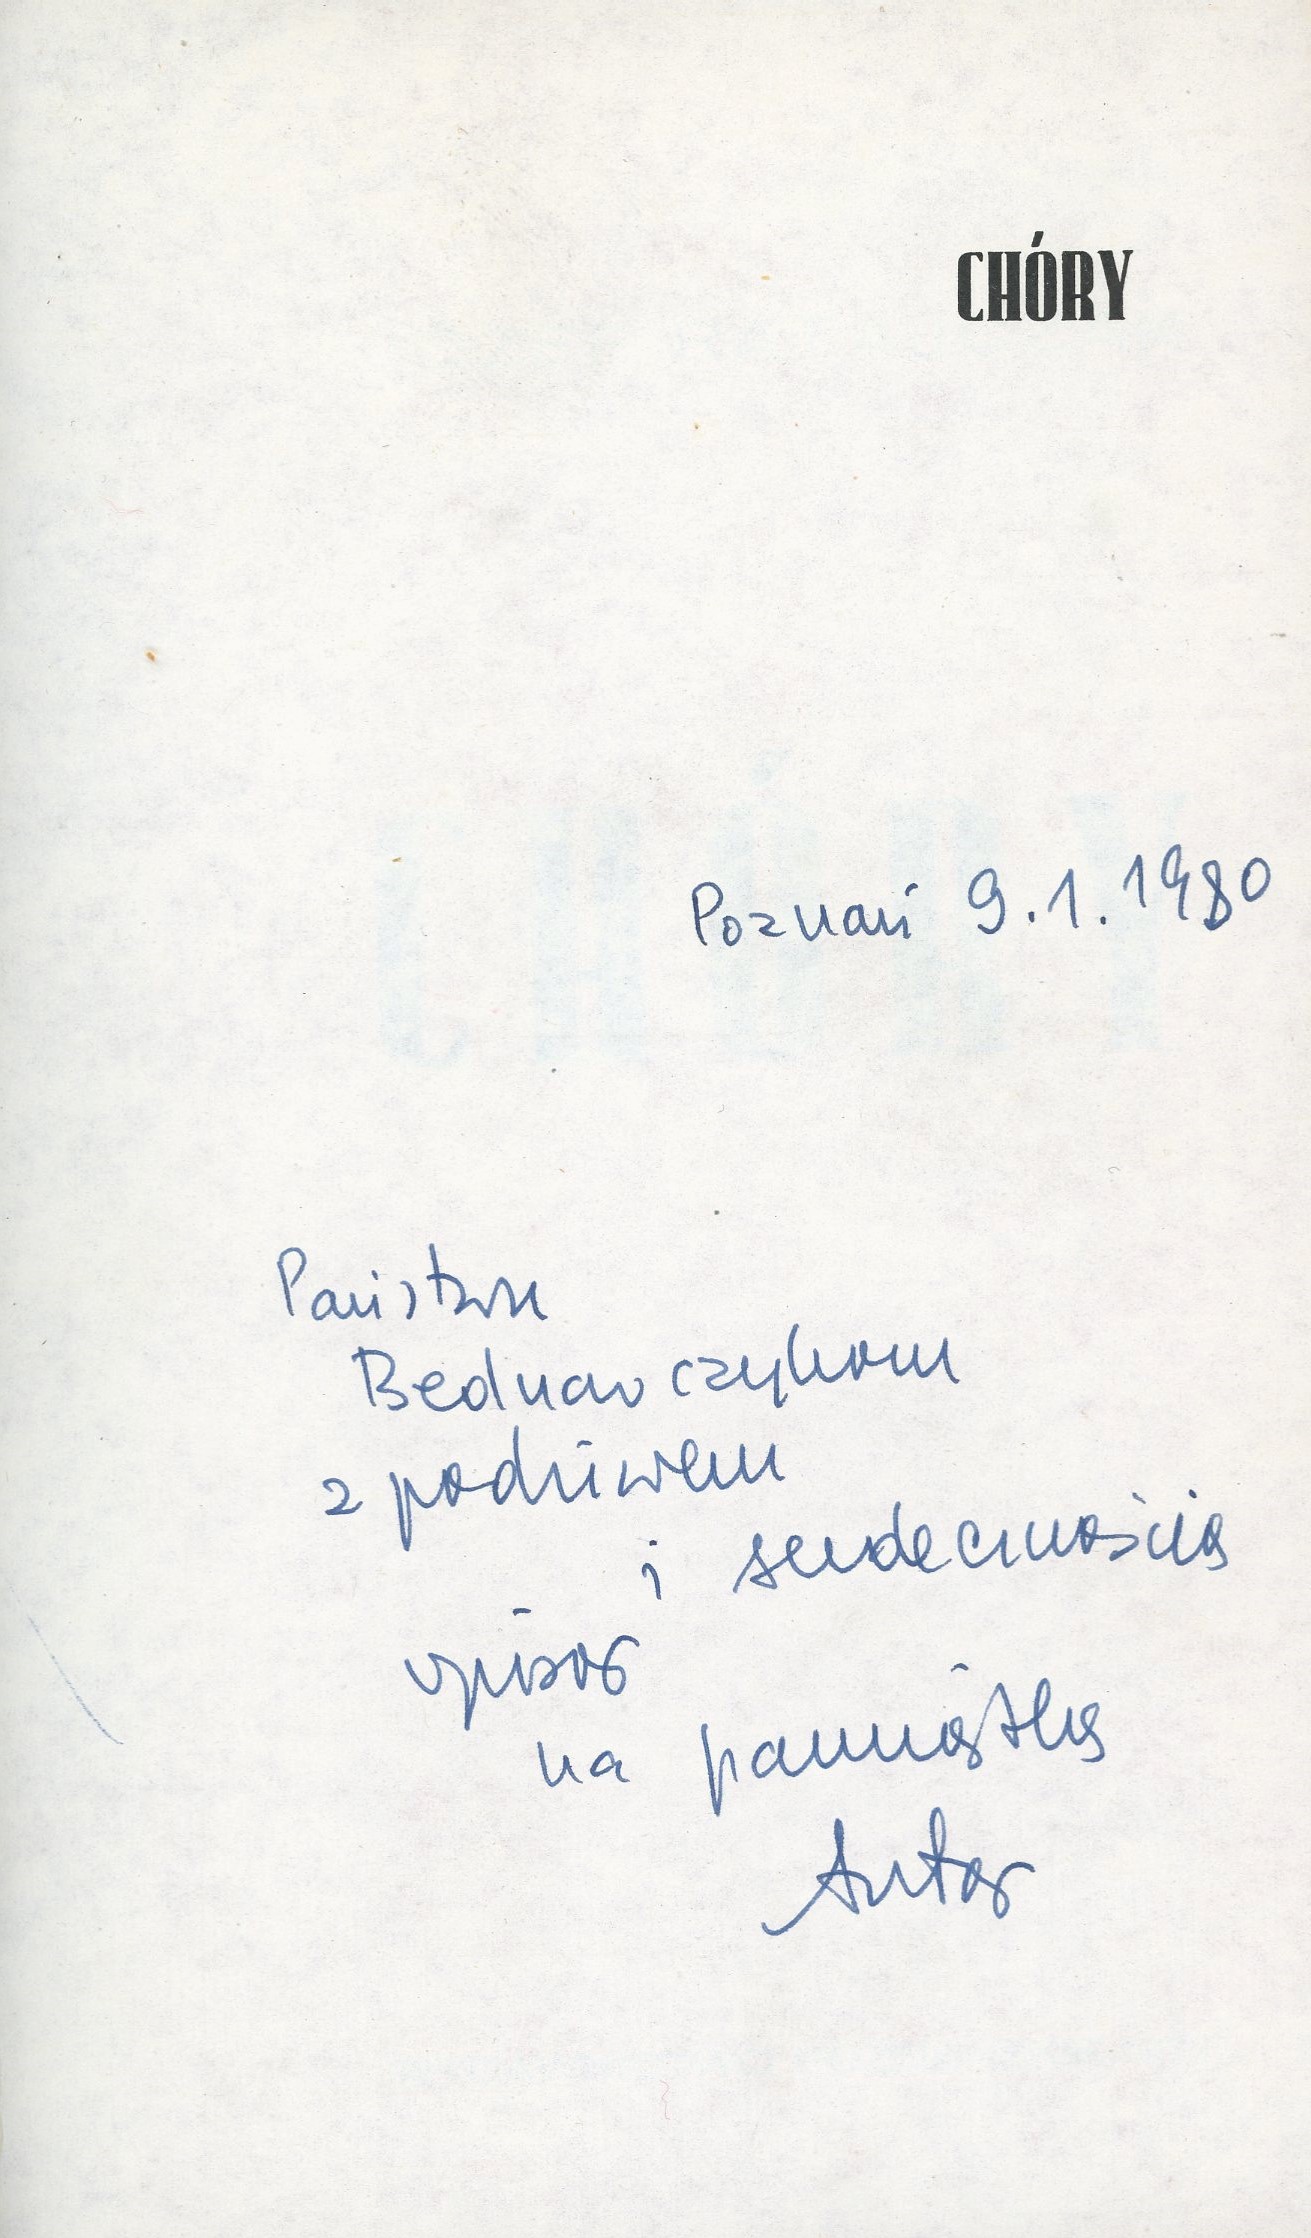 CHÓRY
Poznań 9.1.1980
Państwu
Bednarczykom
z podziwem
i serdecznością
wpisor
na pamiątkę
Autor